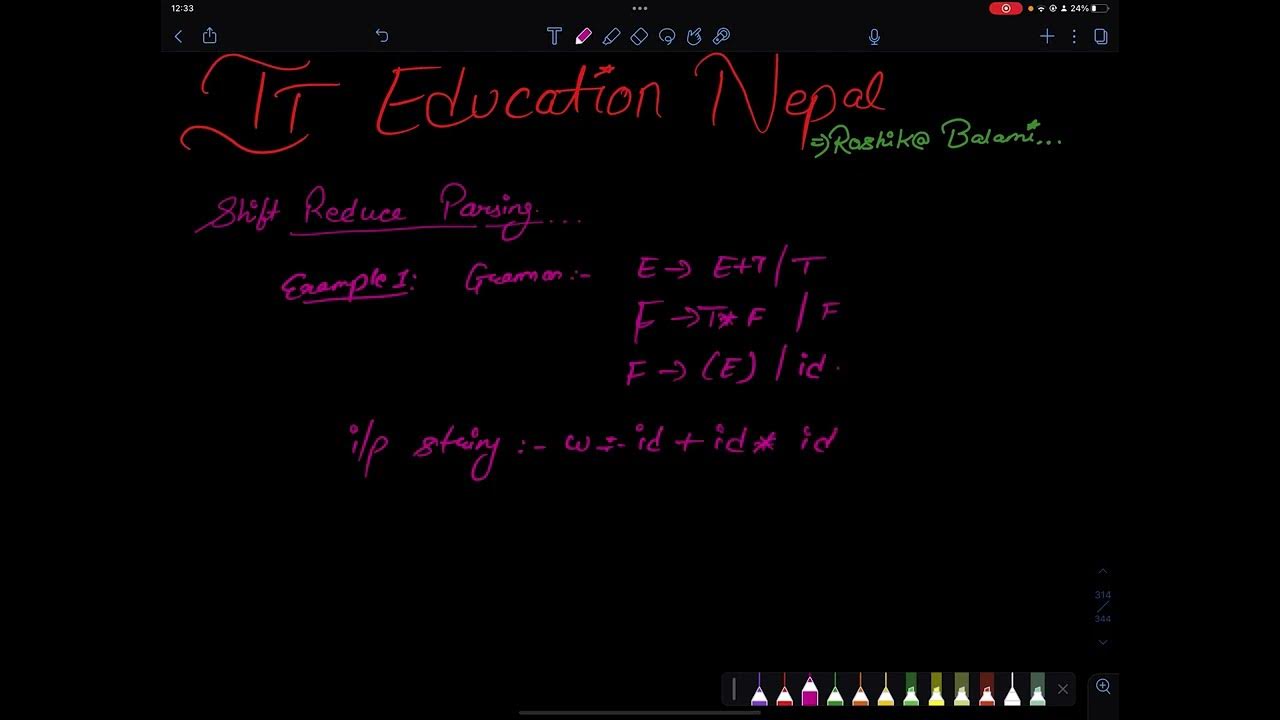 12:33
24%
IT Education Nepal
⇒ Roshik@ Balami...
Shift Reduce Parsing....
Example 1: Grammar:- E → E+T / T
F → T* F / F
F → (E) / id.
i/p string :- w = id + id * id
314
/
344